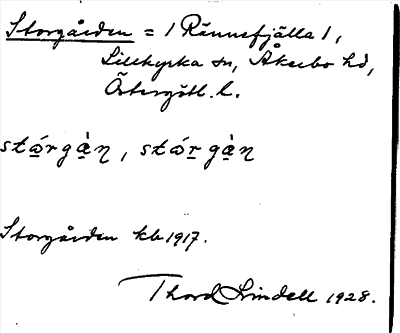 Storgården = 1 Rännefjälla 1,
Lillkyrka sn, Åkerbo hd,
Östergötl. l.
stórgàn, stórgàn
Storgården kb 1917.
Thord Lindell 1928.